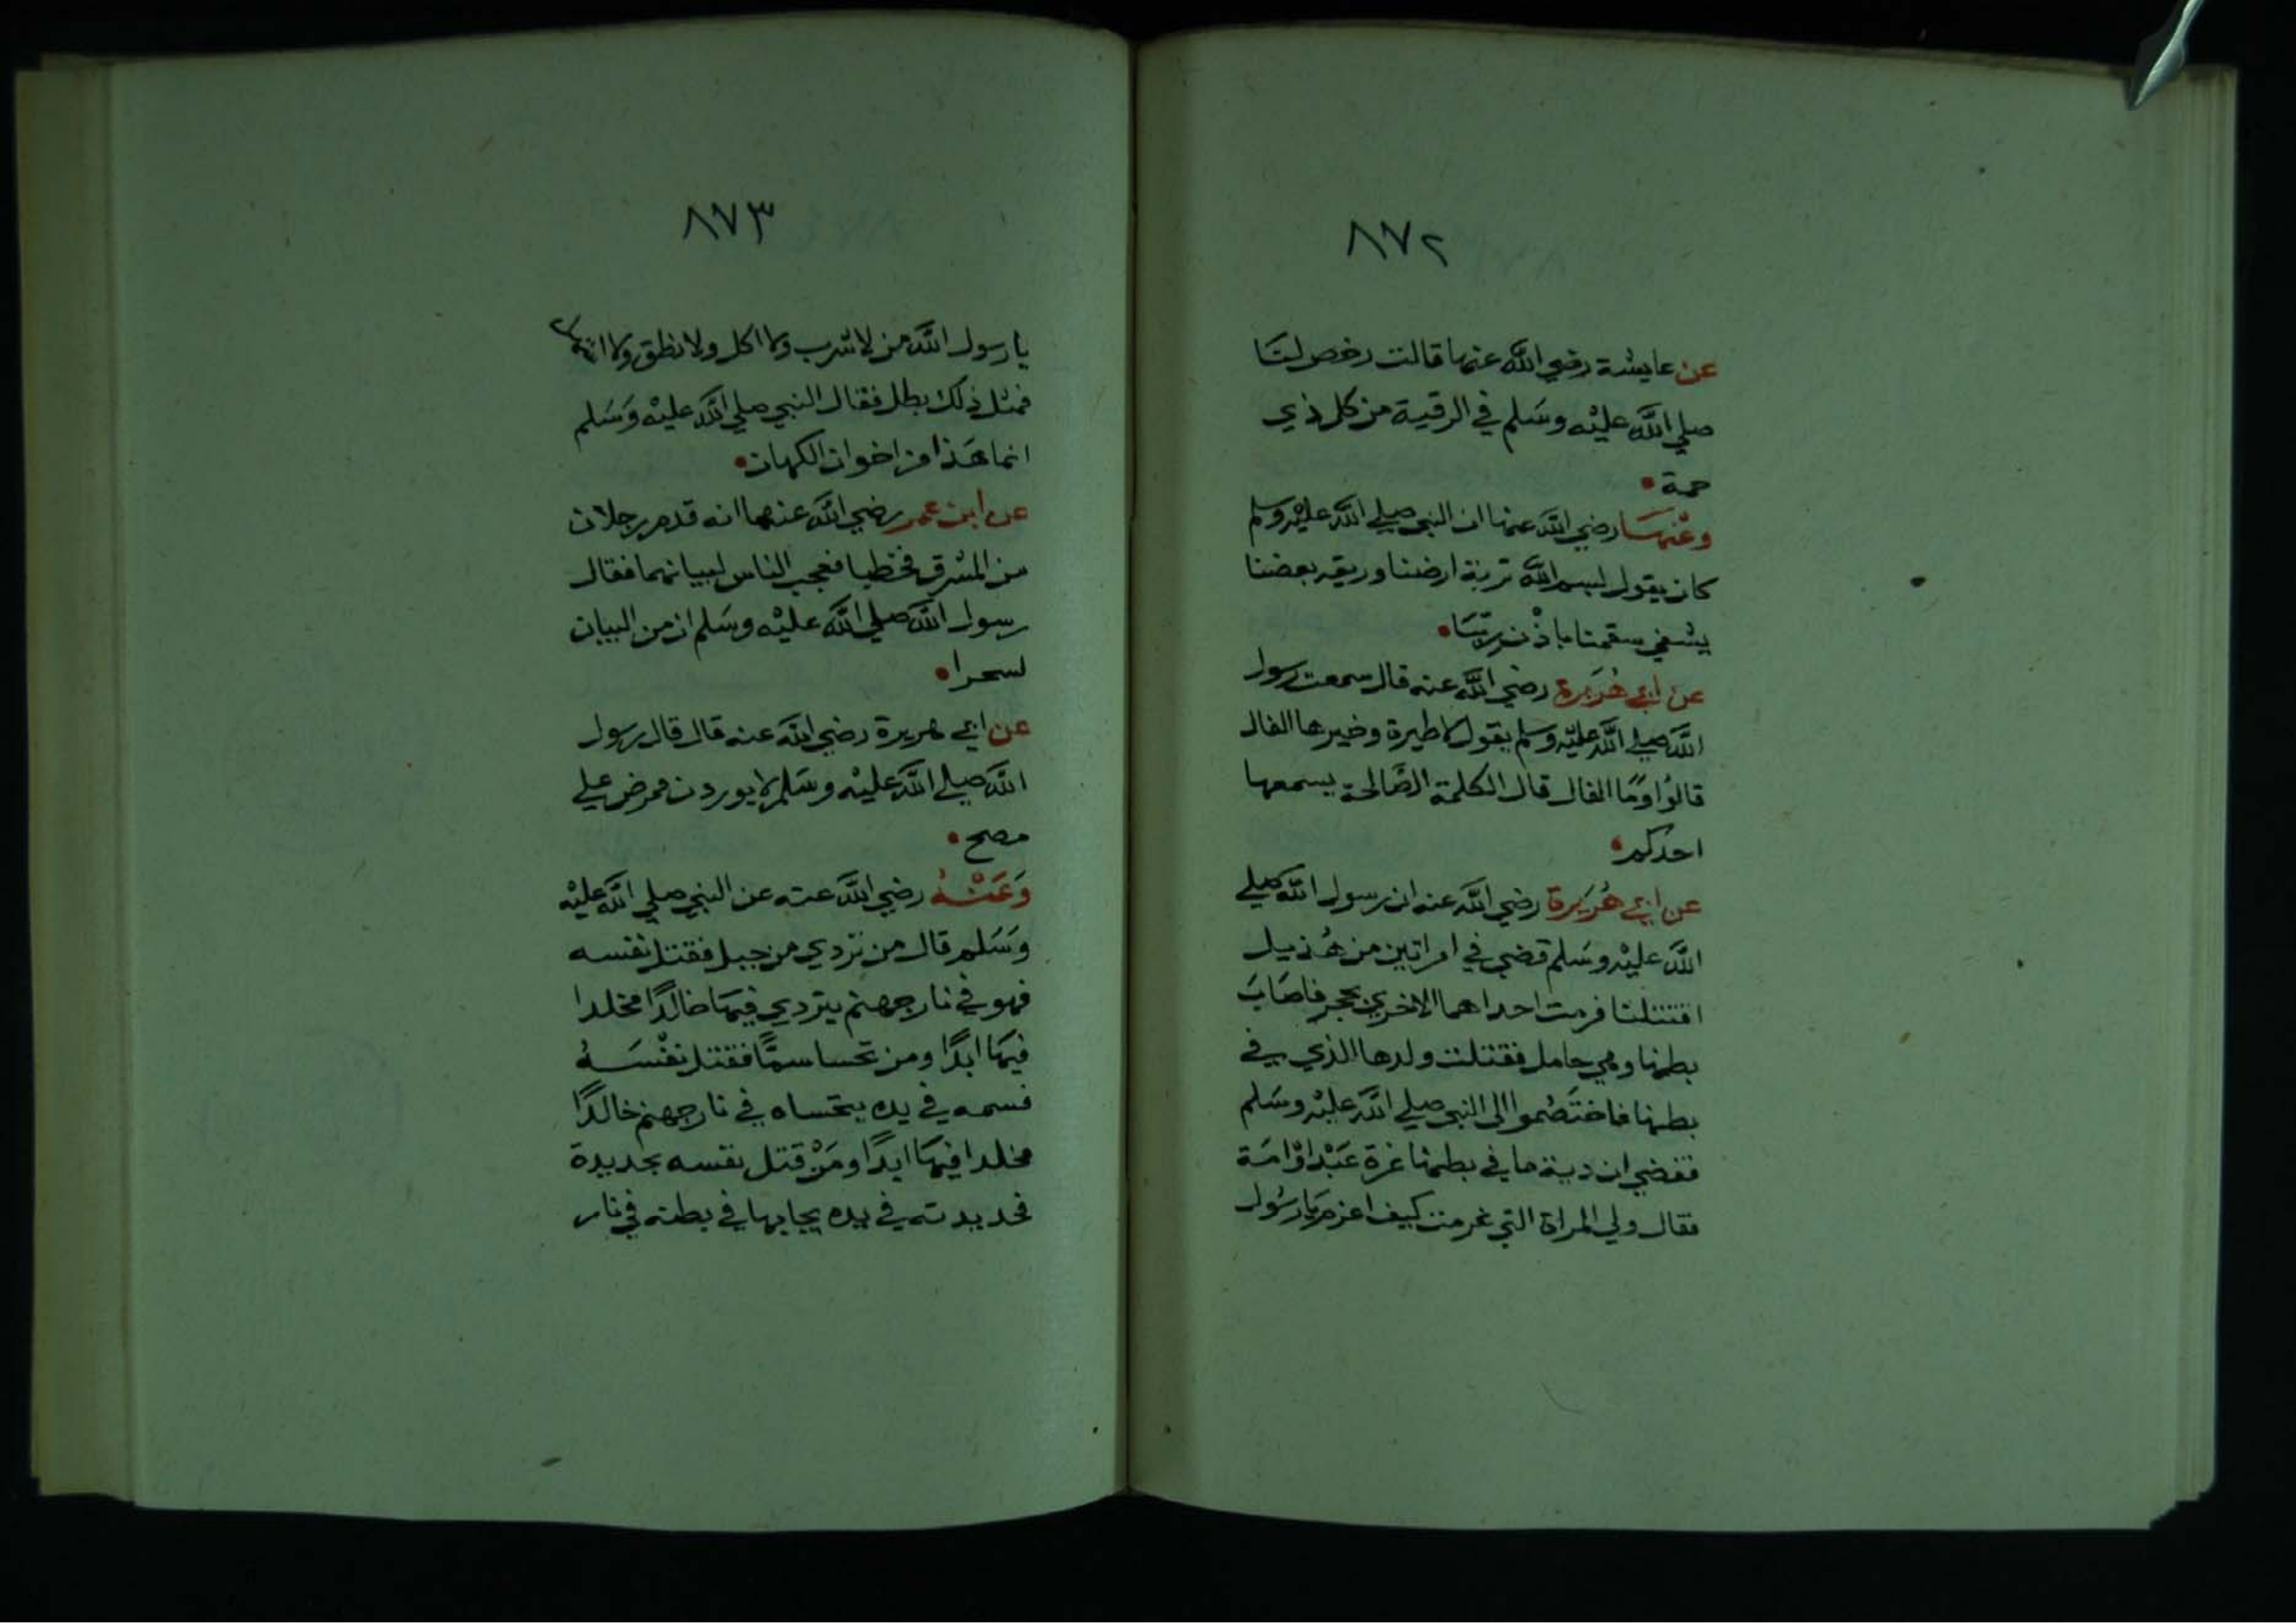 ٨٧٢
عن عايشة رضي الله عنها قالت رخص لنا
صلي الله عليه وسلم في الرقية من كل ذي
حمة
وعنها رضي الله عنها ان النبي صلي الله عليه وسلم
كان يقول لبسم الله تربة ارضنا وريقه بعضنا
يشفي سقمنا باذن ربنا
عن ابي هريرة رضي الله عنه قال سمعت رسول
الله صلي الله عليه وسلم يقول لا طيرة وخيرها الفال
قالوا وما الفال قال الكلمة الصالحة يسمعها
احدكم
عن ابي هريرة رضي الله عنه ان رسول الله صلي
الله عليه وسلم قضي في امراتين من هذيل
اقتتلتا فرمت احداهما الاخري بحجر فاصاب
بطنها وهي حامل فقتلت ولدها الذي في
بطنها فاختصموا الى النبي صلي الله عليه وسلم
فقضي ان دية ما في بطنها غرة عبد او امة
فقال ولي المراة التي غرمت كيف اغرم يا رسول
٨٧٣
يا رسول الله من لا شرب ولا اكل ولا نطق ولا
فمثل ذلك بطل فقال النبي صلي الله عليه وسلم
انما هذا من اخوان الكهان
عن ابن عمر رضي الله عنهما انه قدم رجلان
من المشرق فخطبا فعجب الناس لبيانهما فقال
رسول الله صلي الله عليه وسلم ان من البيان
لسحرا
عن ابي هريرة رضي الله عنه قال قال رسول
الله صلي الله عليه وسلم لا يوردن ممرض علي
مصح
وعنه رضي الله عنه عن النبي صلي الله عليه
وسلم قال من تردي من جبل فقتل نفسه
فهو في نار جهنم يتردي فيها خالدا مخلدا
فيها ابدا ومن تحسا سما فقتل نفسه
فسمه في يده يتحساه في نار جهنم خالدا
مخلدا فيها ابدا ومن قتل نفسه بحديدة
فحديدته في يده يجا بها في بطنه في نار